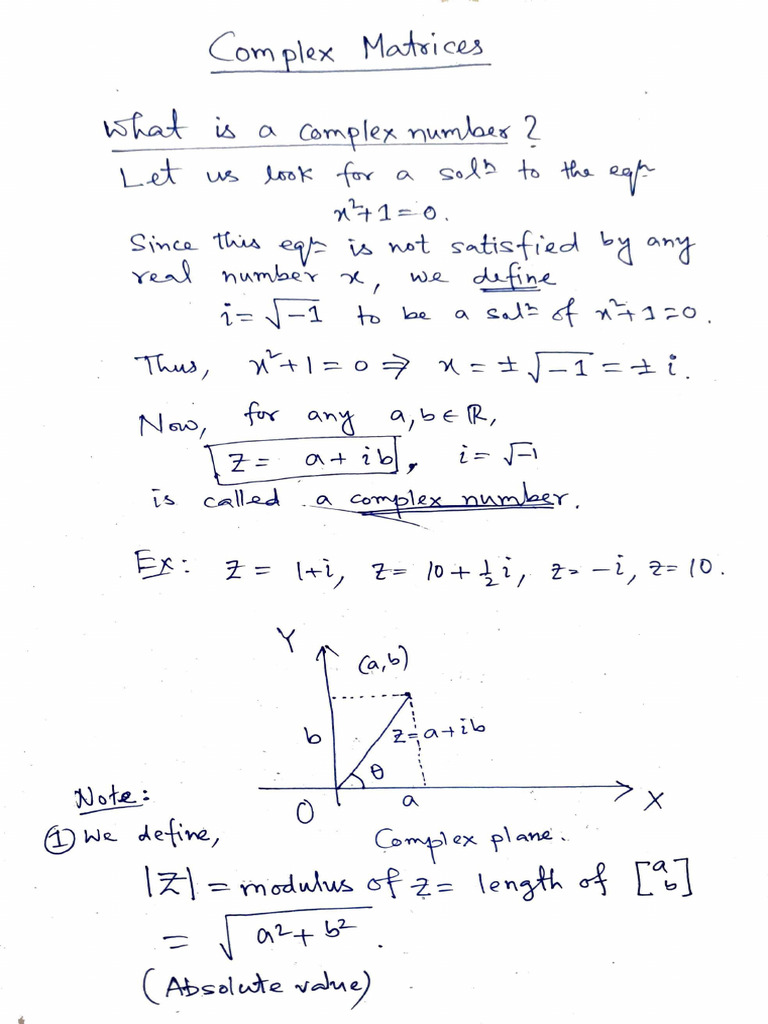 Complex Matrices
What is a complex number?
Let us look for a solⁿ to the eqⁿ
x²+1=0.
Since this eqⁿ is not satisfied by any
real number x, we define
i=√-1 to be a solⁿ of x²+1=0.
Thus, x²+1=0 ⇒ x = ±√-1 = ± i.
Now, for any a,b∈ℝ,
z = a+ib, i=√-1
is called a complex number.
Ex: z = 1+i, z= 10+½i, z=-i, z=10.
Y
(a,b)
b
z=a+ib
θ
O a X
Complex plane.
Note:
① We define,
|z| = modulus of z = length of [a b]
= √a²+b².
(Absolute value)